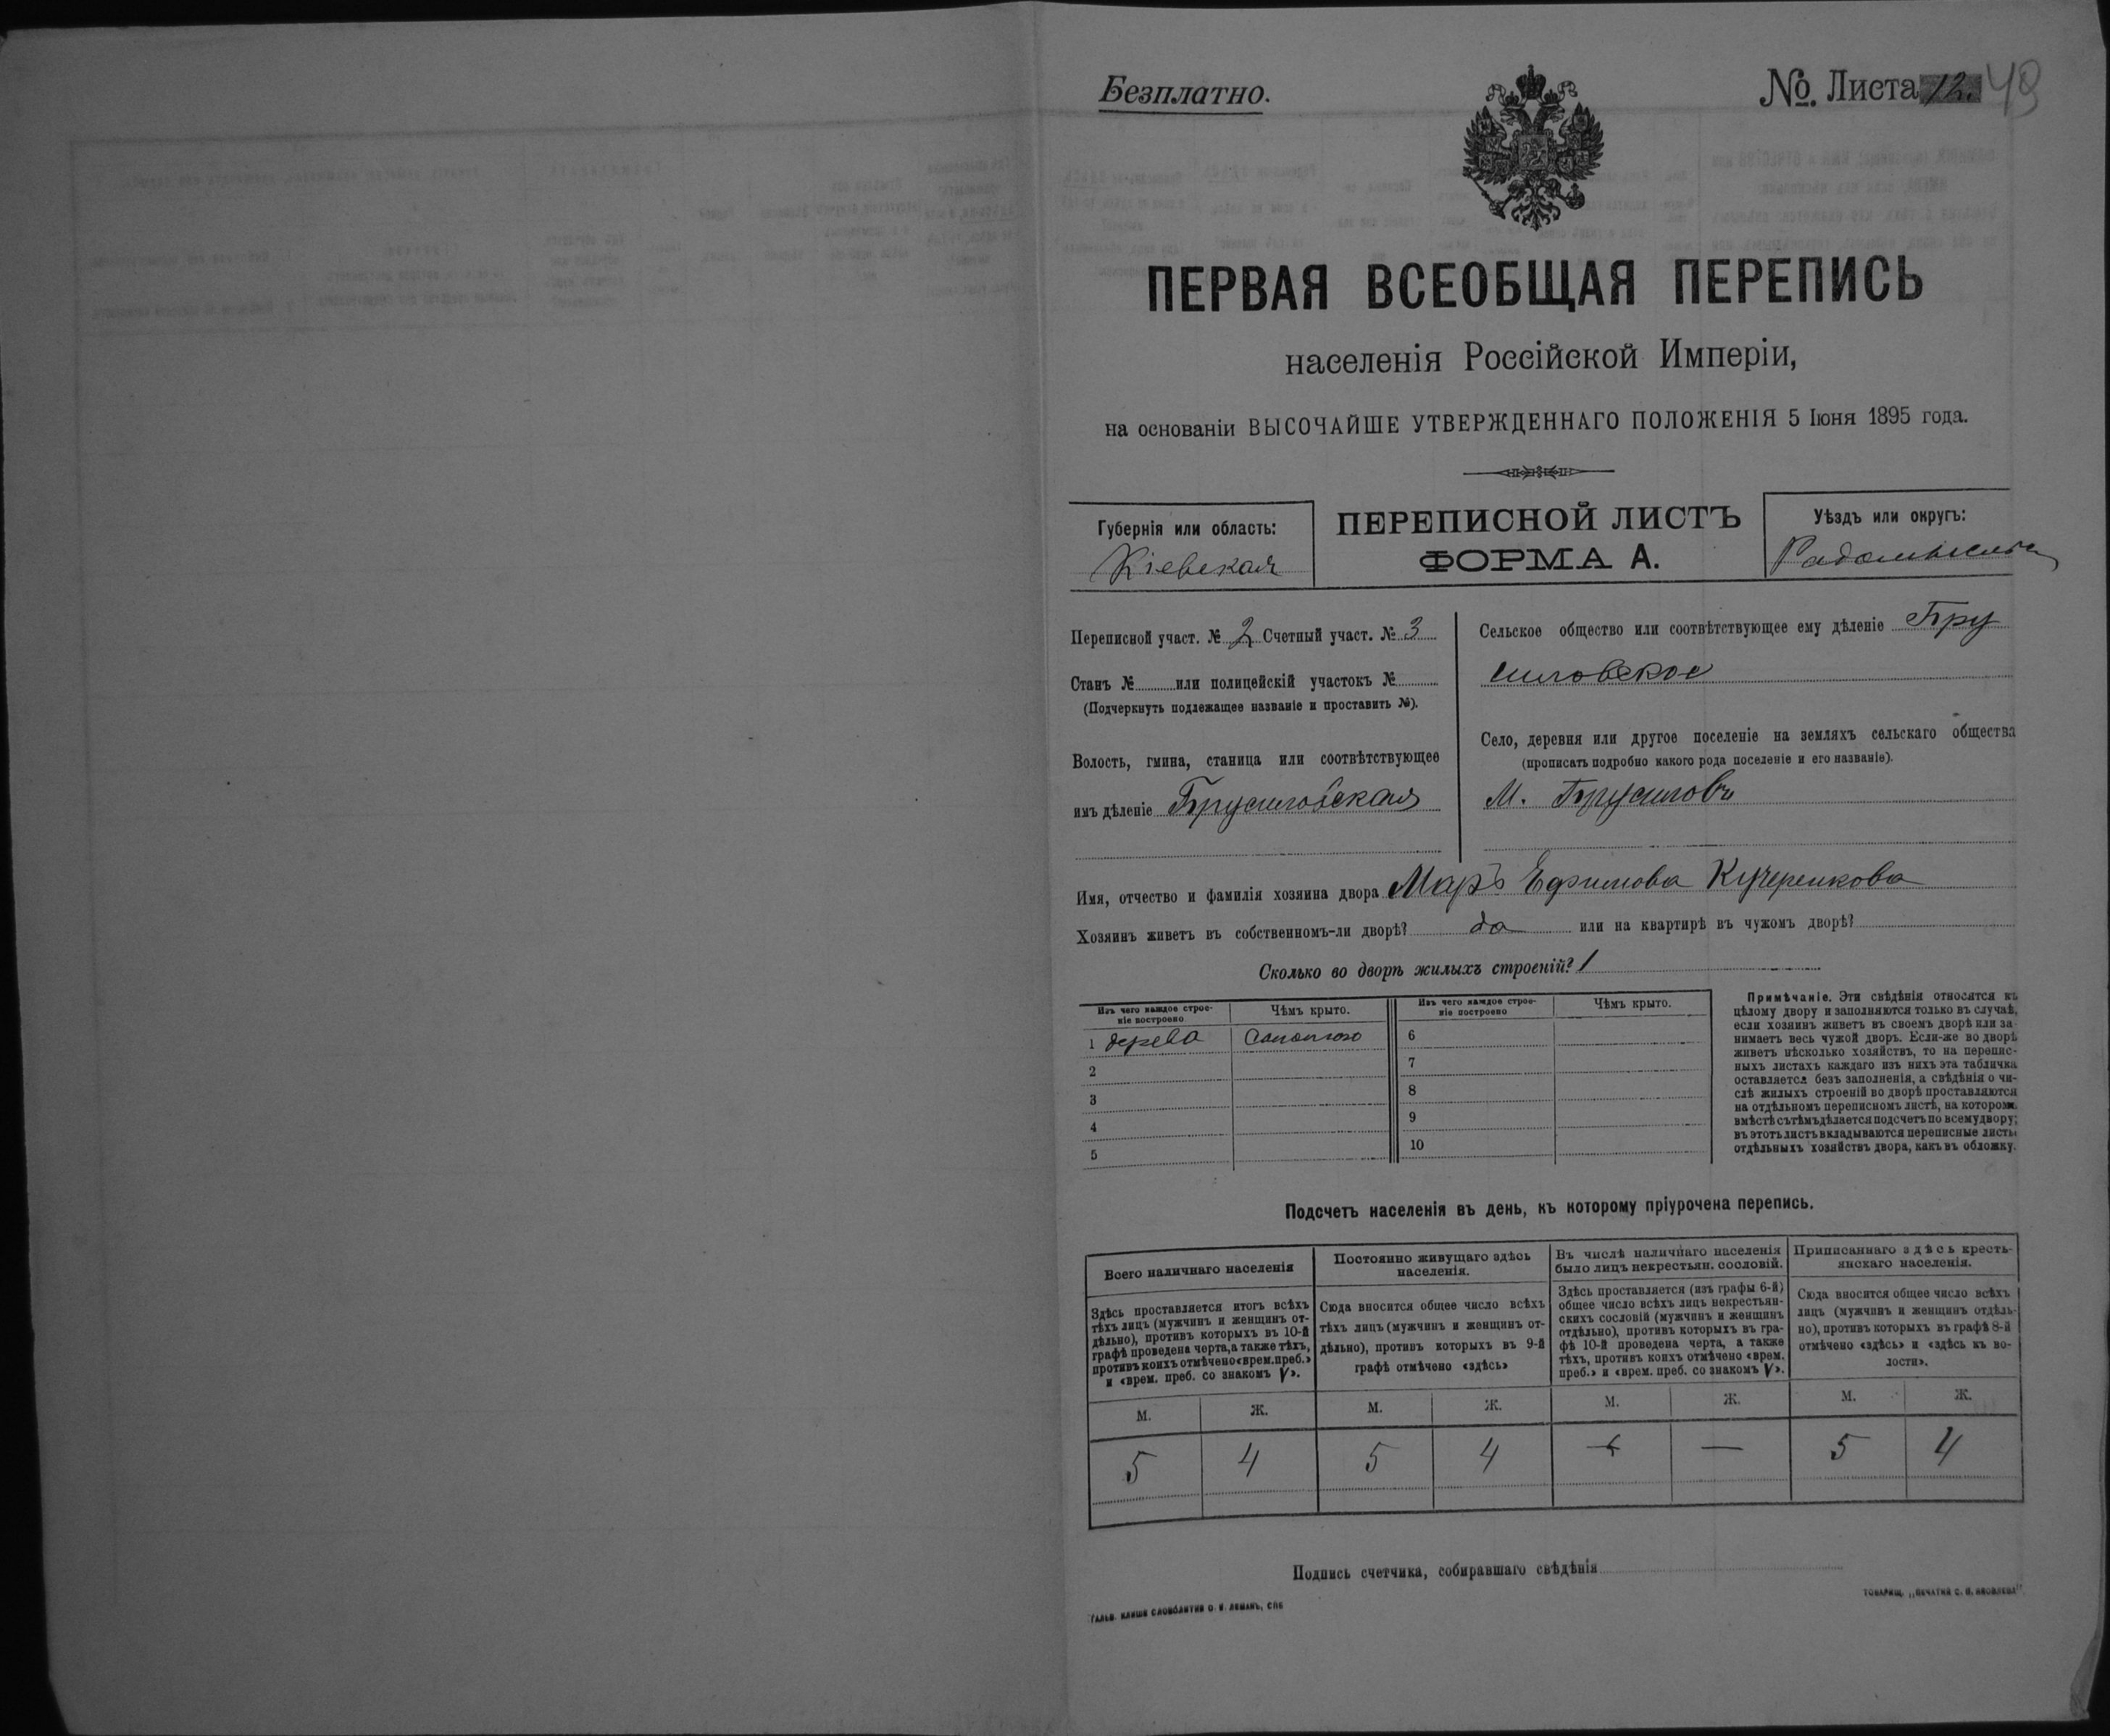 Безплатно.
№ Листа 12. 49
ПЕРВАЯ ВСЕОБЩАЯ ПЕРЕПИСЬ
населенія Россійской Имперіи,
на основаніи ВЫСОЧАЙШЕ УТВЕРЖДЕННАГО ПОЛОЖЕНІЯ 5 Іюня 1895 года.
Губернія или область:
Кіевская
ПЕРЕПИСНОЙ ЛИСТЪ
ФОРМА А.
Уѣздъ или округъ:
Переписной участ. № 2 Счетный участ. № 3
Станъ № или полицейскій участокъ №
(Подчеркнуть подлежащее названіе и проставить №).
Волость, гмина, станица или соотвѣтствующее
имъ дѣленіе Брусиловская
Сельское общество или соотвѣтствующее ему дѣленіе Бру
силовское
Село, деревня или другое поселеніе на земляхъ сельскаго общества
(прописать подробно какого рода поселеніе и его названіе).
М. Брусиловъ
Имя, отчество и фамилія хозяина двора Ефимова Кучеренкова
Хозяинъ живетъ въ собственномъ-ли дворѣ? да или на квартирѣ въ чужомъ дворѣ?
Сколько во дворѣ жилыхъ строеній? 1
Изъ чего каждое строе-
ніе построено
Чѣмъ крыто.
1 дерева Соломою
2
3
4
5
Изъ чего каждое строе-
ніе построено
Чѣмъ крыто.
6
7
8
9
10
Примѣчаніе. Эти свѣдѣнія относятся къ
цѣлому двору и заполняются только въ случаѣ,
если хозяинъ живетъ въ своемъ дворѣ или за-
нимаетъ весь чужой дворъ. Если-же во дворѣ
живетъ нѣсколько хозяйствъ, то на перепис-
ныхъ листахъ каждаго изъ нихъ эта табличка
оставляется безъ заполненія, а свѣдѣнія о чи-
слѣ жилыхъ строеній во дворѣ проставляются
на отдѣльномъ переписномъ листѣ, на которомъ
вмѣстѣ съ тѣмъ дѣлается подсчетъ по всему двору;
въ этотъ листъ вкладываются переписные листы
отдѣльныхъ хозяйствъ двора, какъ въ обложку.
Подсчетъ населенія въ день, къ которому пріурочена перепись.
Всего наличнаго населенія
Здѣсь проставляется итогъ всѣхъ
тѣхъ лицъ (мужчинъ и женщинъ от-
дѣльно), противъ которыхъ въ 10-й
графѣ проведена черта, а также тѣхъ,
противъ коихъ отмѣчено «врем. преб.»
и «врем. преб. со знакомъ V».
М. Ж.
5 4
Постоянно живущаго здѣсь
населенія.
Сюда вносится общее число всѣхъ
тѣхъ лицъ (мужчинъ и женщинъ от-
дѣльно), противъ которыхъ въ 9-й
графѣ отмѣчено «здѣсь»
М. Ж.
5 4
Въ числѣ наличнаго населенія
было лицъ некрестьян. сословій.
Здѣсь проставляется (изъ графы 6-й)
общее число всѣхъ лицъ некрестьян-
скихъ сословій (мужчинъ и женщинъ
отдѣльно), противъ которыхъ въ гра-
фѣ 10-й проведена черта, а также
тѣхъ, противъ коихъ отмѣчено «врем.
преб.» и «врем. преб. со знакомъ V».
М. Ж.
— —
Приписаннаго здѣсь кресть-
янскаго населенія.
Сюда вносится общее число всѣхъ
лицъ (мужчинъ и женщинъ отдѣль-
но), противъ которыхъ въ графѣ 8-й
отмѣчено «здѣсь» и «здѣсь къ во-
лости».
М. Ж.
5 4
Подпись счетчика, собиравшаго свѣдѣнія
ГАЛЬВ. КЛИШЕ СЛОВОЛИТНИ О. И. ЛЕМАНЪ, СПБ
ТОВАРИЩ. „ПЕЧАТНЯ С. П. ЯКОВЛЕВА"